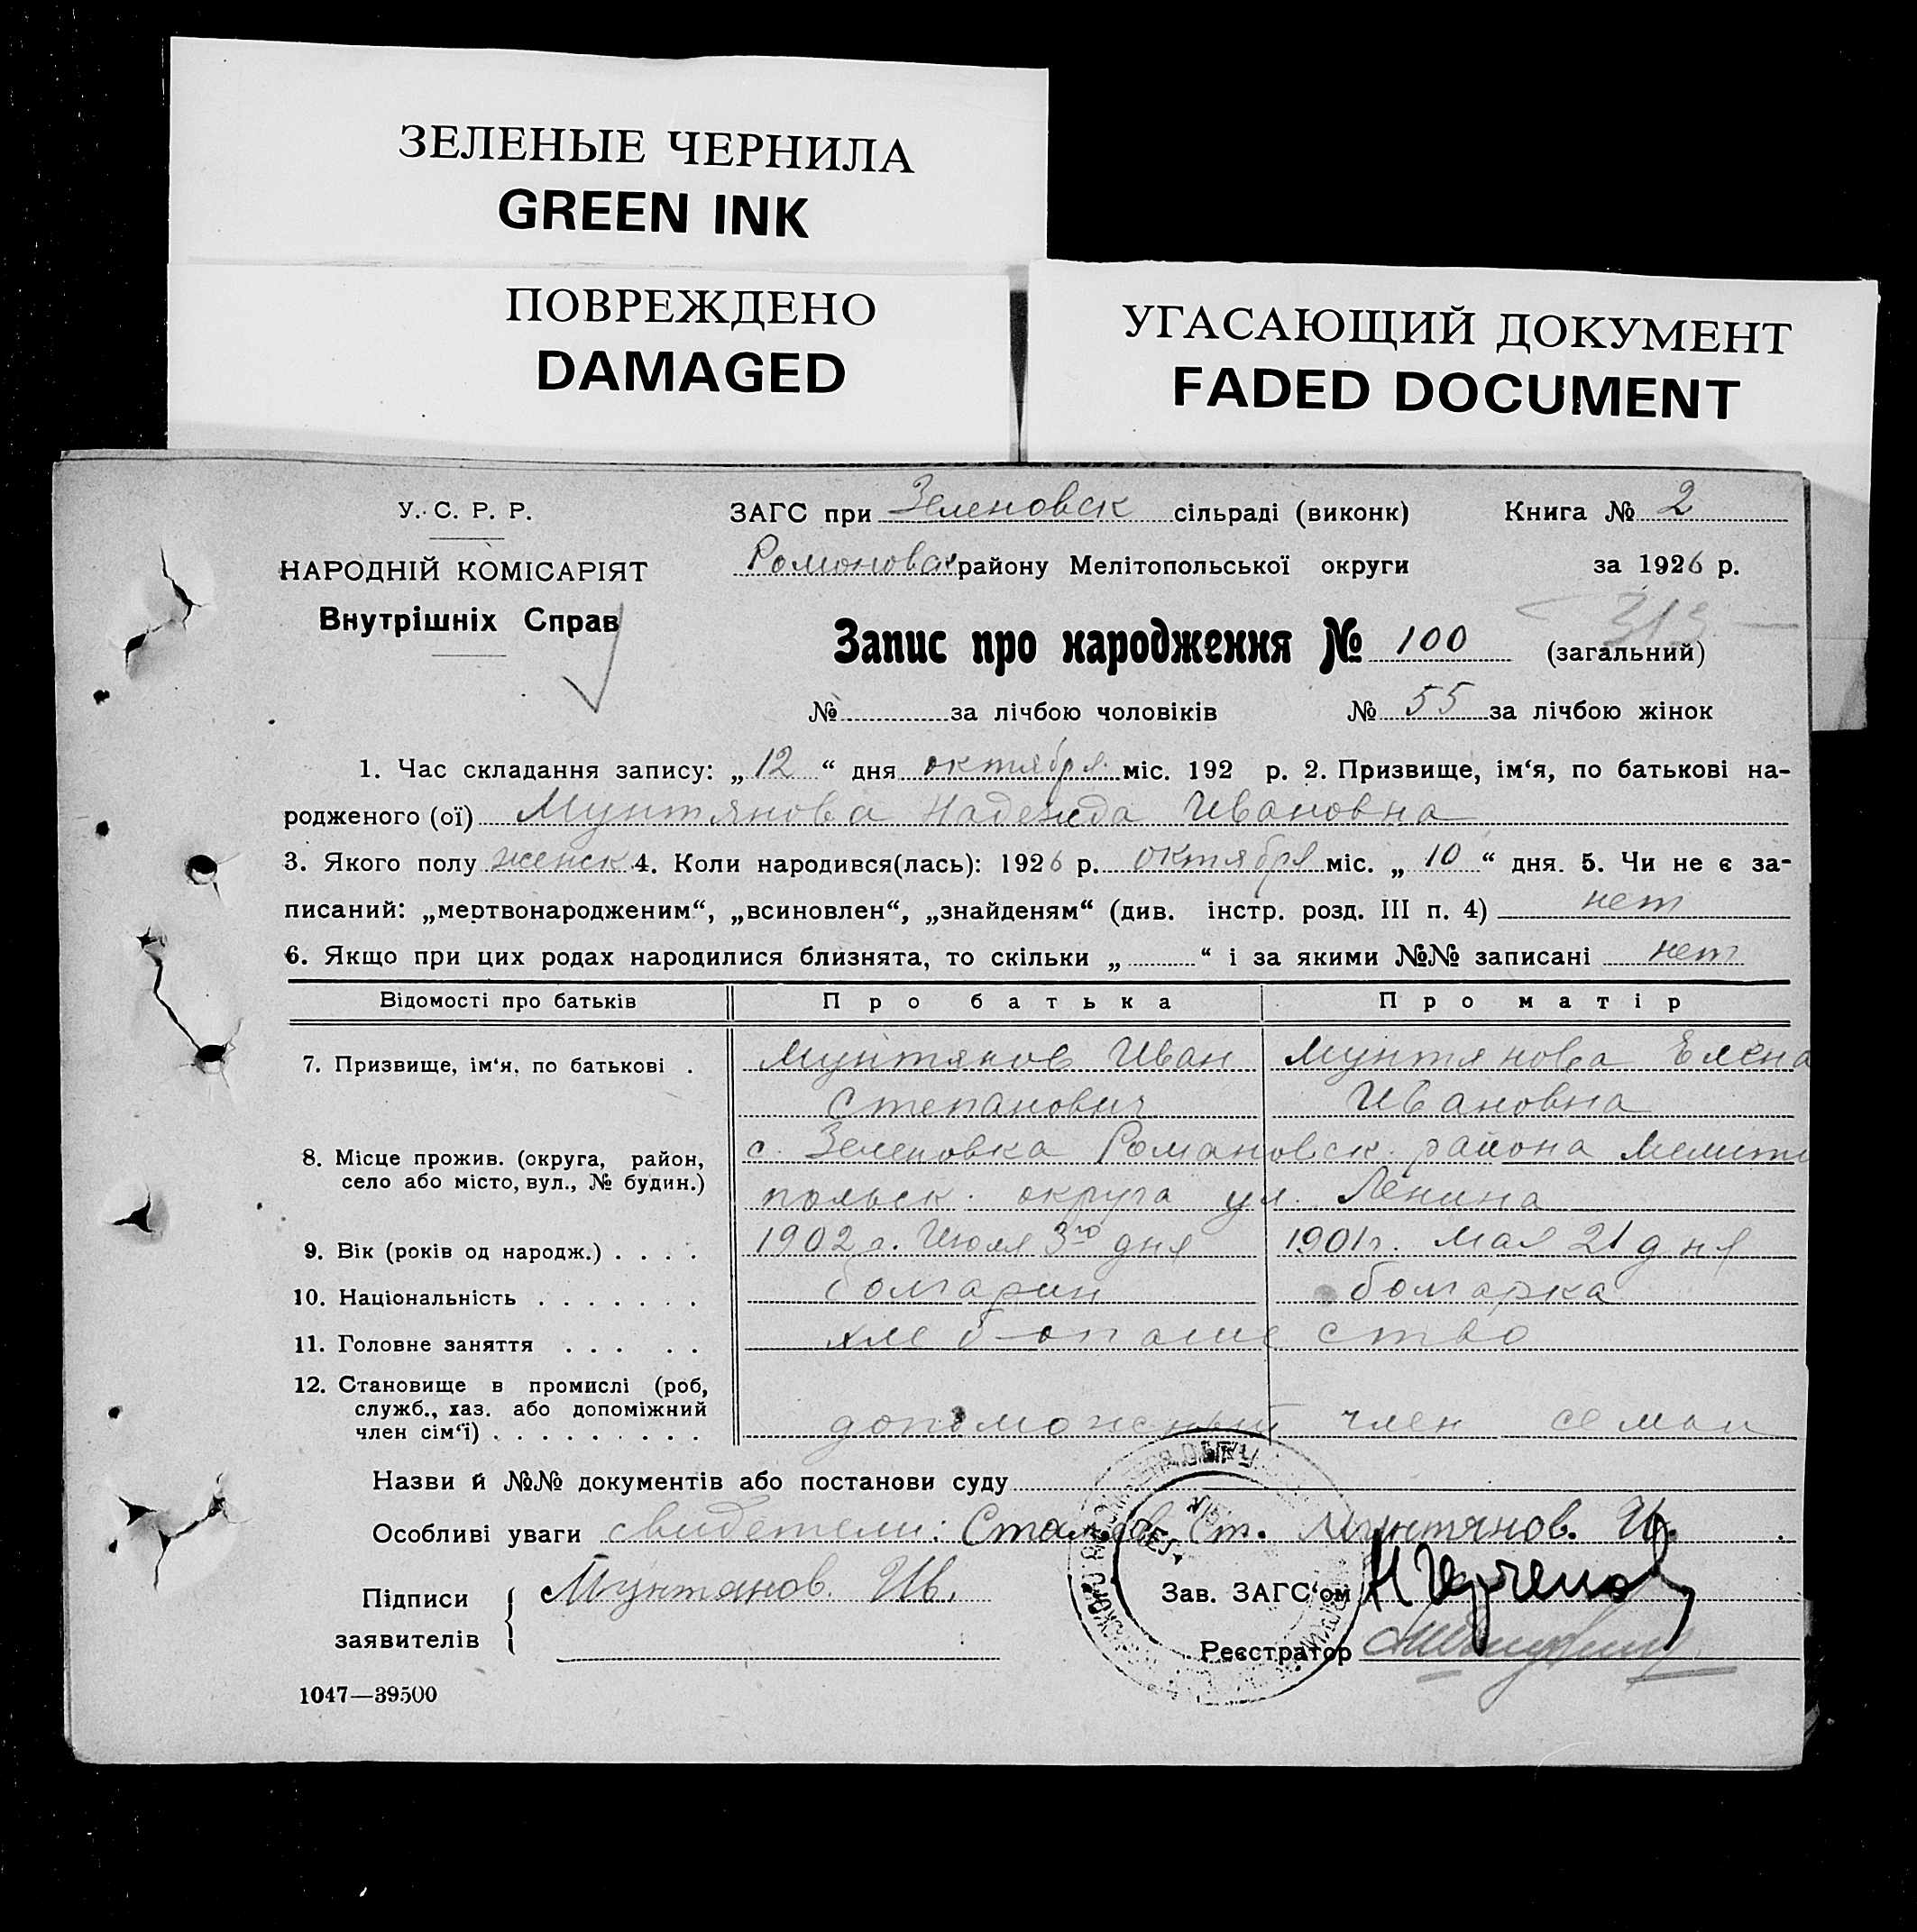 ЗЕЛЕНЫЕ ЧЕРНИЛА
GREEN INK
ПОВРЕЖДЕНО
DAMAGED
УГАСАЮЩИЙ ДОКУМЕНТ
FADED DOCUMENT
У. С. Р. Р.
НАРОДНІЙ КОМІСАРІЯТ
Внутрішніх Справ
ЗАГС при Зеленовск сільраді (виконк) Книга № 2
Ромоновск району Мелітопольської округи за 1926 р.
313
Запис про народження № 100 (загальний)
№ за лічбою чоловіків № 55 за лічбою жінок
1. Час складання запису: „12“ дня октября міс. 192 р. 2. Призвище, ім‘я, по батькові на-
родженого (ої) Мунтянова Надежда Ивановна
3. Якого полу женск 4. Коли народився(лась): 1926 р. октября міс. „10“ дня. 5. Чи не є за-
писаний: „мертвонародженим“, „всиновлен“, „знайденям“ (див. інстр. розд. III п. 4) нет
6. Якщо при цих родах народилися близнята, то скільки „ “ і за якими №№ записані нет
Відомості про батьків Про батька Про матір
7. Призвище, ім‘я, по батькові . Мунтянов Иван Мунтянова Елена
Степанович Ивановна
8. Місце прожив. (округа, район, с. Зеленовка Романовск. района Мелито
село або місто, вул., № будин.) польск. округа ул. Ленина
9. Вік (років од народж.) . . . . 1902 г. Июля 3го дня 1901 г. мая 21 дня
10. Національність . . . . . . . болгарин болгарка
11. Головне заняття . . . . . хлебопашество
12. Становище в промислі (роб,
служб., хаз. або допоміжний
член сім‘ї) . . . . . . . . . допоможный член семьи
Назви й №№ документів або постанови суду
Особливі уваги свидетели: Ст. Мунтянов. И.
Підписи заявителів Мунтянов. Ив.
Зав. ЗАГС‘ом
Реєстратор
1047—39500